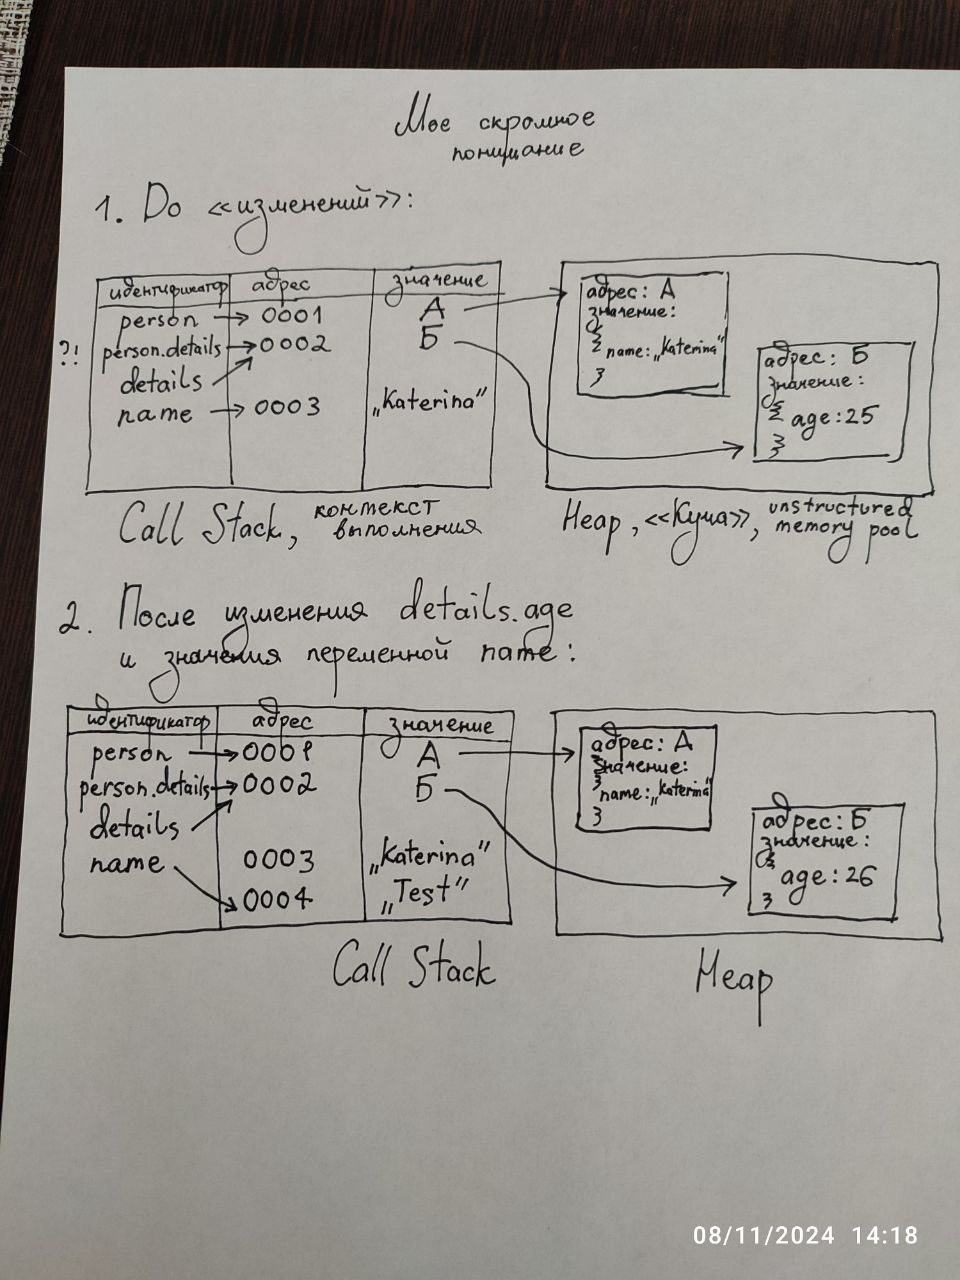 Мое скромное
понимание
1. До «изменений»:
идентификатор адрес значение
person → 0001 А
?! person.details → 0002 Б
details
name → 0003 „Katerina”
адрес: А
значение:
{
name: „Katerina”
}
адрес: Б
значение:
{
age: 25
}
Call Stack, контекст
выполнения
Heap, «Куча», unstructured
memory pool
2. После изменения details.age
и значения переменной name:
идентификатор адрес значение
person → 0001 А
person.details → 0002 Б
details
name 0003 „Katerina”
0004 „Test”
адрес: А
значение:
{
name: „Katerina”
}
адрес: Б
значение:
{
age: 26
}
Call Stack
Heap
08/11/2024 14:18